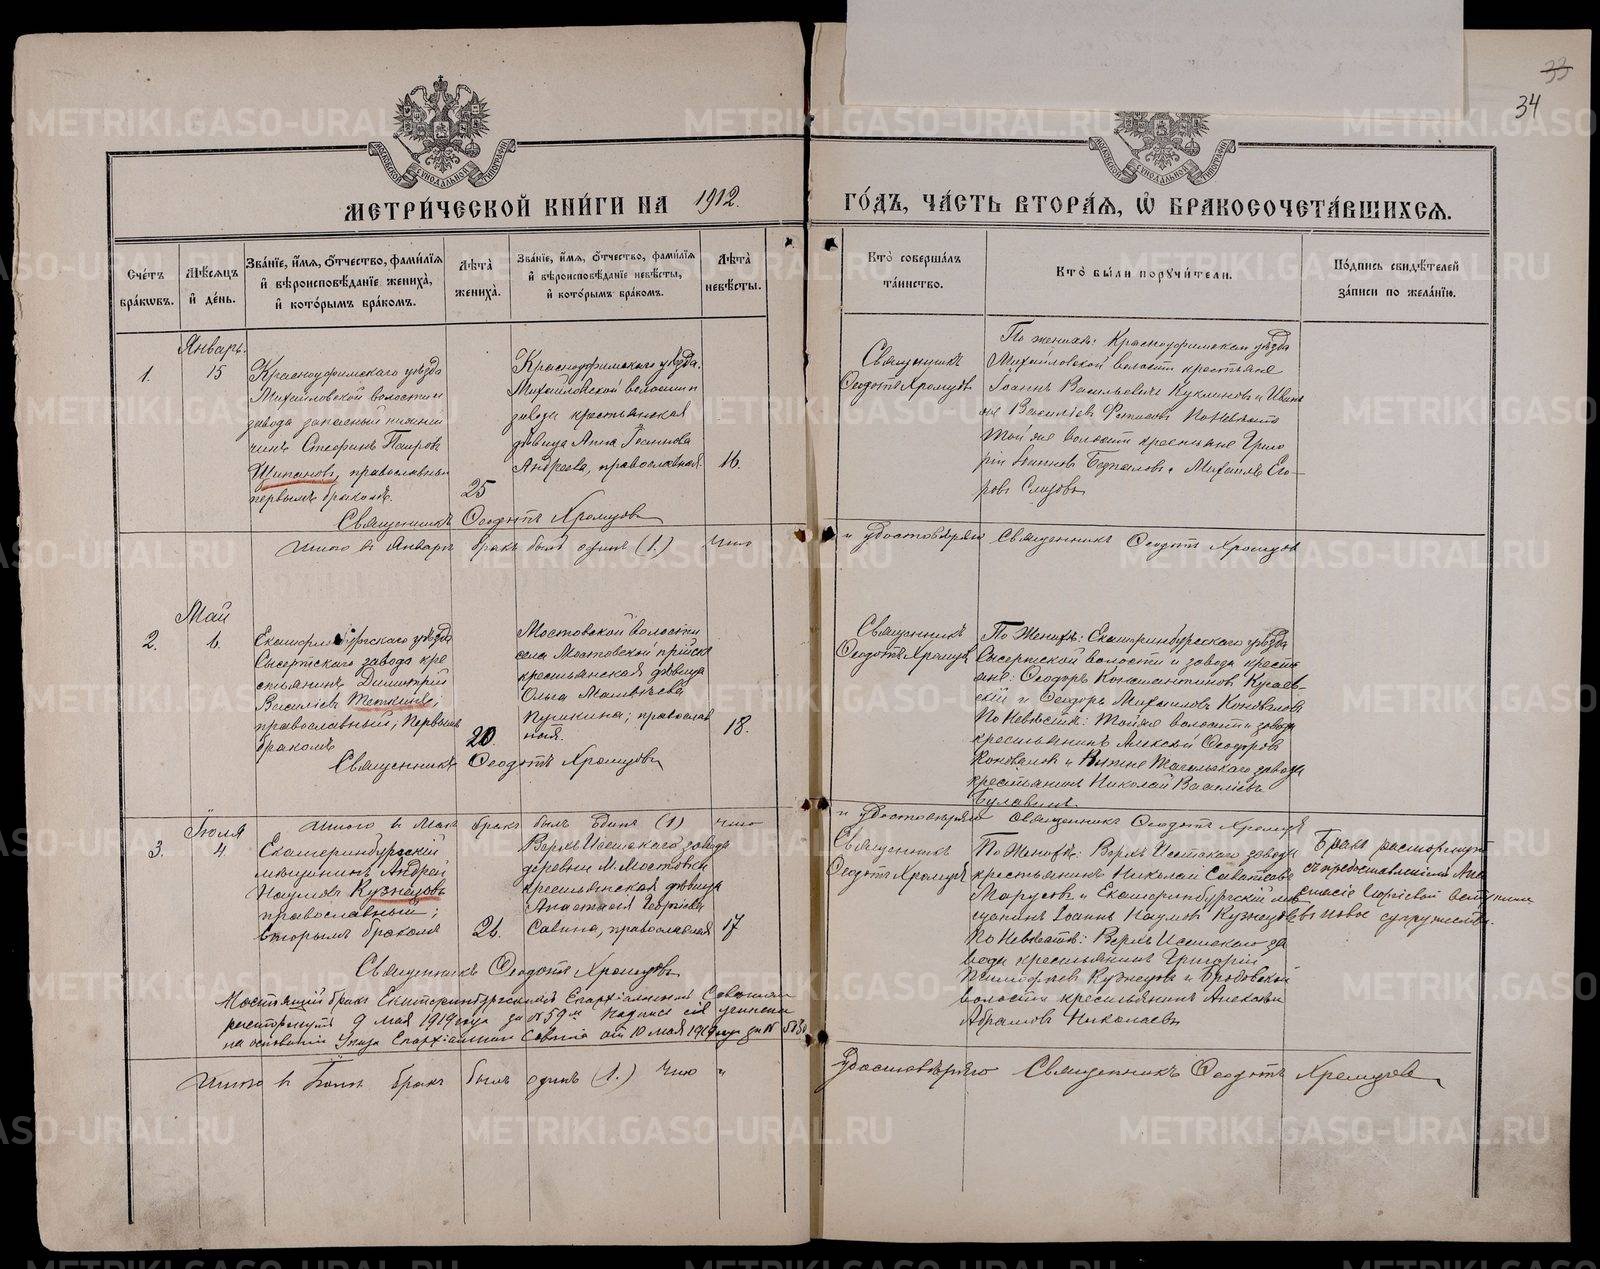 33
34
МЕТРИ́ЧЕСКОЙ КНИ́ГИ НА 1912.
ГО́ДЪ, ЧА́СТЬ ВТОРА́Я, Ѡ҆ БРАКОСОЧЕТА́ВШИХСЯ.
МОСКОВСКОЙ СѴНОДАЛЬНОЙ ТИПОГРАФІИ
Сче́тъ бра́кѡвъ.
Мѣ́сяцъ и҆ де́нь.
Зва́ніе, и҆́мя, ѻ҆́тчество, фами́лія и҆ вѣроисповѣ́даніе жениха̀, и҆ кото́рымъ бра́комъ.
Лѣта̀ жениха̀.
Зва́ніе, и҆́мя, ѻ҆́тчество, фами́лія и҆ вѣроисповѣ́даніе невѣ́сты, и҆ кото́рымъ бра́комъ.
Лѣта̀ невѣ́сты.
Кто̀ соверша́лъ та́инство.
Кто̀ бы́ли поручи́тели.
По́дпись свидѣ́телей за́писи по жела́нію.
Январь.
1.
15
Красноуфимскаго уѣзда
Михайловской волости и
завода запасный нижній
чинъ Стефанъ
Щипановъ, православный
первымъ бракомъ.
25
Красноуфимскаго уѣзда.
Михайловской волости и
завода крестьянская
дѣвица Анна
Андреева, православная.
16.
Священникъ
Ѳеодотъ Хромцовъ
По женихѣ: Красноуфимскаго уѣзда
Михайловской волости крестьяне
Іоаннъ Васильевичъ и Иванъ
Василіевъ По невѣстѣ
той же волости крестьяне Григо
рій и Михаилъ Его
ровъ
Священникъ Ѳеодотъ Хромцовъ
Итого въ Январѣ бракъ былъ одинъ (1.) Что
и удостовѣряю Священникъ Ѳеодотъ Хромцовъ
Май
2.
6.
Екатеринбургскаго уѣзда
Сысертскаго завода кре
стьянинъ Димитрій
Василіевъ Теткинъ;
православный; первымъ
бракомъ
20.
Мостовской волости
села Мостовской
крестьянская дѣвица
Ольга Матвѣева
Пушкина; православ
ная.
18.
Священникъ
Ѳеодотъ Хромцовъ
По Женихѣ: Екатеринбургскаго уѣзда
Сысертской волости и завода кресть
яне: Ѳеодоръ Константиновъ
и Ѳеодоръ Михаиловъ Коноваловъ
По Невѣстѣ: Той же волости и завода
крестьянинъ Алексѣй Ѳеодоровъ
Коноваловъ и Нижне Тагильскаго завода
крестьянинъ Николай Василіевъ
Священникъ Ѳеодотъ Хромцовъ
Итого въ Маѣ бракъ былъ одинъ (1) Что
и удостовѣряю Священникъ Ѳеодотъ Хромцовъ
Іюля
3.
4.
Екатеринбургскій
мѣщанинъ Андрей
Наумовъ Кузнецовъ
православный;
вторымъ бракомъ
26.
Верхъ Исетскаго завода
деревни М. Мостовки
крестьянская дѣвица
Анастасія Георгіева
Савина, православная
17
Священникъ
Ѳеодотъ Хромцовъ
По Женихѣ: Верхъ Исетскаго завода
крестьянинъ Николай Савватіевъ
и Екатеринбургскій мѣ
щанинъ Іоаннъ Наумовъ Кузнецовъ
По Невѣстѣ: Верхъ Исетскаго за
вода крестьянинъ Григорій
Кузнецовъ и
волости крестьянинъ Алексѣй
Абрамовъ Николаевъ
Бракъ расторгнутъ
съ предоставленіемъ Ана
стасіи Георгіевой вступить
въ новое супружество.
Священникъ Ѳеодотъ Хромцовъ
Настоящій бракъ Екатеринбургскимъ Епархіальнымъ Совѣтомъ
расторгнутъ 9 мая 1919 года за № 59 Надпись сія учинена
на основаніи Указа Епархіальнаго Совѣта отъ 10 мая 1919 года за №
Итого въ Іюлѣ бракъ былъ одинъ (1.) Что
удостовѣряю Священникъ Ѳеодотъ Хромцовъ
METRIKI.GASO-URAL.RU